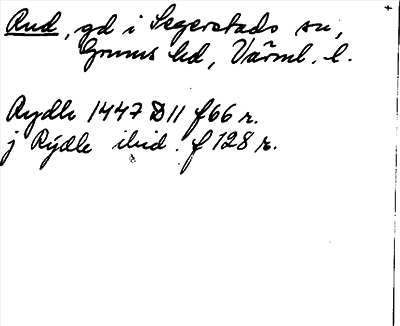 Rud, gd i Segerstads sn,
Grums hd, Värml. l.
Rydle 1447 D 11 f 66 r.
j Rydle ibid. f 128 r.